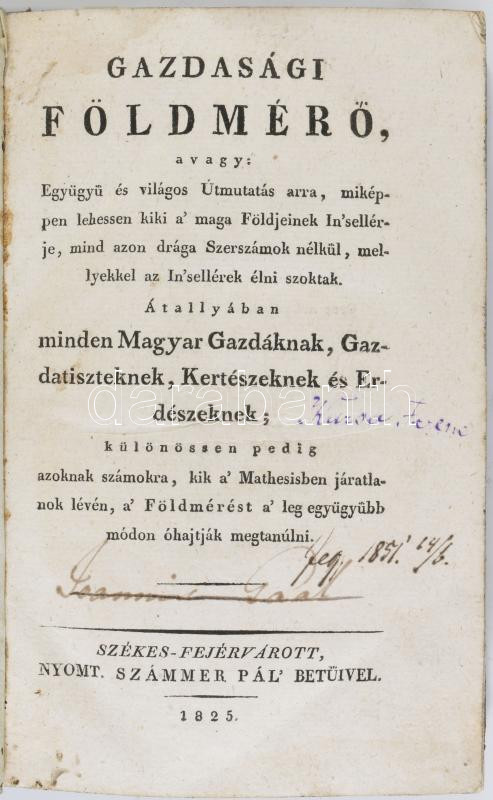 GAZDASÁGI
FÖLDMÉRŐ,
avagy:
Együgyű és világos Útmutatás arra, mikép-
pen lehessen kiki a' maga Földjeinek In'sellér-
je, mind azon drága Szerszámok nélkül, mel-
lyekkel az In'sellérek élni szoktak.
Átallyában
minden Magyar Gazdáknak, Gaz-
datiszteknek, Kertészeknek és Er-
darabanth
dészeknek;
különössen pedig
azoknak számokra, kik a' Mathesisben járatla-
nok lévén, a' Földmérést a' leg együgyűbb
módon óhajtják megtanúlni.
1851.
SZÉKES-FEJÉRVÁROTT,
NYOMT. SZÁMMER PÁL' BETŰIVEL.
1825.